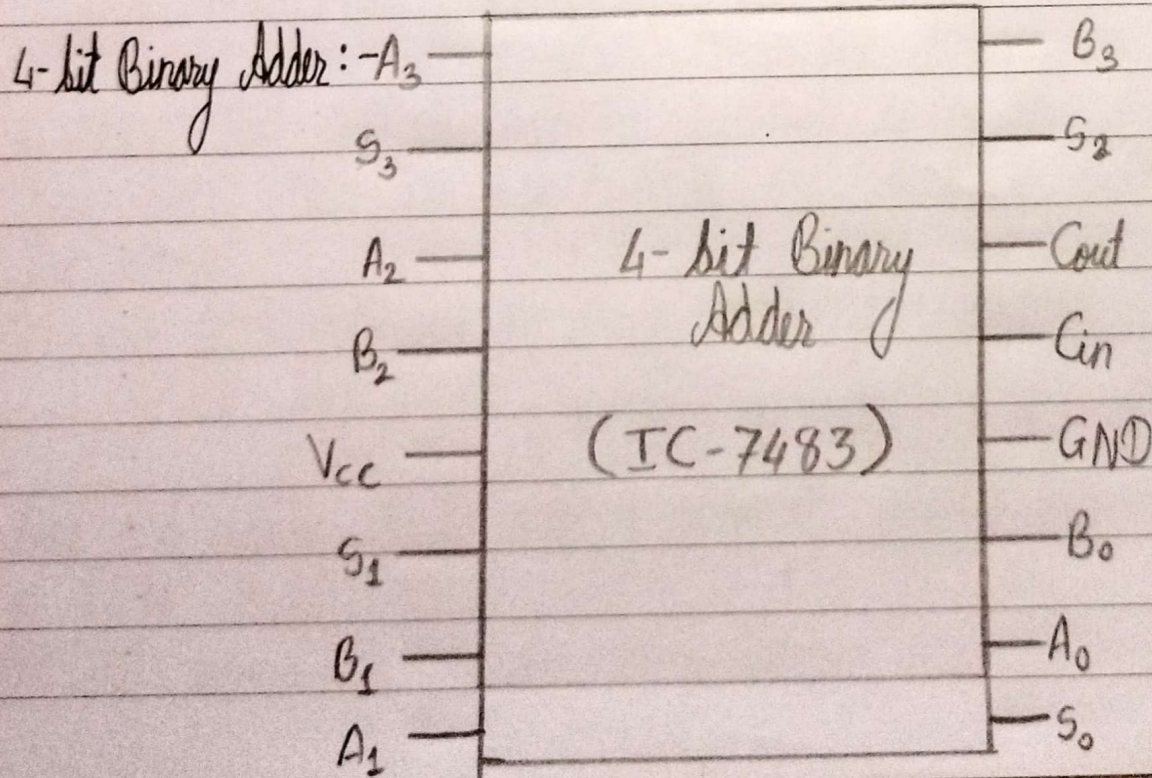 4-bit Binary Adder:-
A3
S3
A2
B2
Vcc
S1
B1
A1
4-bit Binary
Adder
(IC-7483)
B3
S2
Cout
Cin
GND
B0
A0
S0